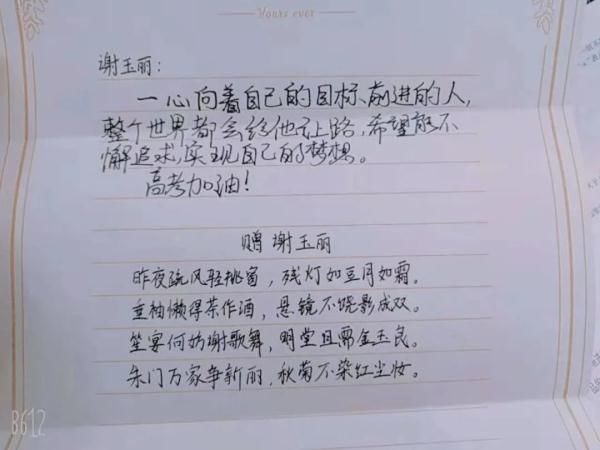 Yours ever
谢玉丽:
一心向着自己的目标前进的人,
整个世界都会给他让路,希望能不
懈追求,实现自己的梦想。
高考加油!
赠谢玉丽
昨夜疏风轻挑窗,残灯如豆月如霜。
垂袖懒得茶作酒,悬镜不晓影成双。
笙宴何妨谢歌舞,明堂且需金玉良。
朱门万家争新丽,秋菊不染红尘妆。
B612